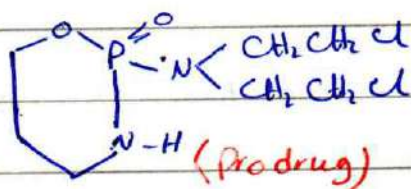 O O
P N CH₂CH₂Cl
CH₂CH₂Cl
N-H (Prodrug)